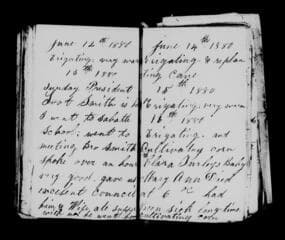 June 12th 1880
Irigating. very warm
13th 1880
Sunday President
Lorot Smith is here
I went to Sabath
School. went to
meeting Bro Smith
spoke over an hour
very good. gave us
excelent Council
him & Wife ate supper
with us he went home
June 14th 1880
Irigating & replan
ting Cane
15th 1880
Irigating. very warm
16th 1880
Irigating. and
Cultivating corn
Clara Burleys Baby
Mary Ann Died
at 6 had
been sick long time
cultivating corn